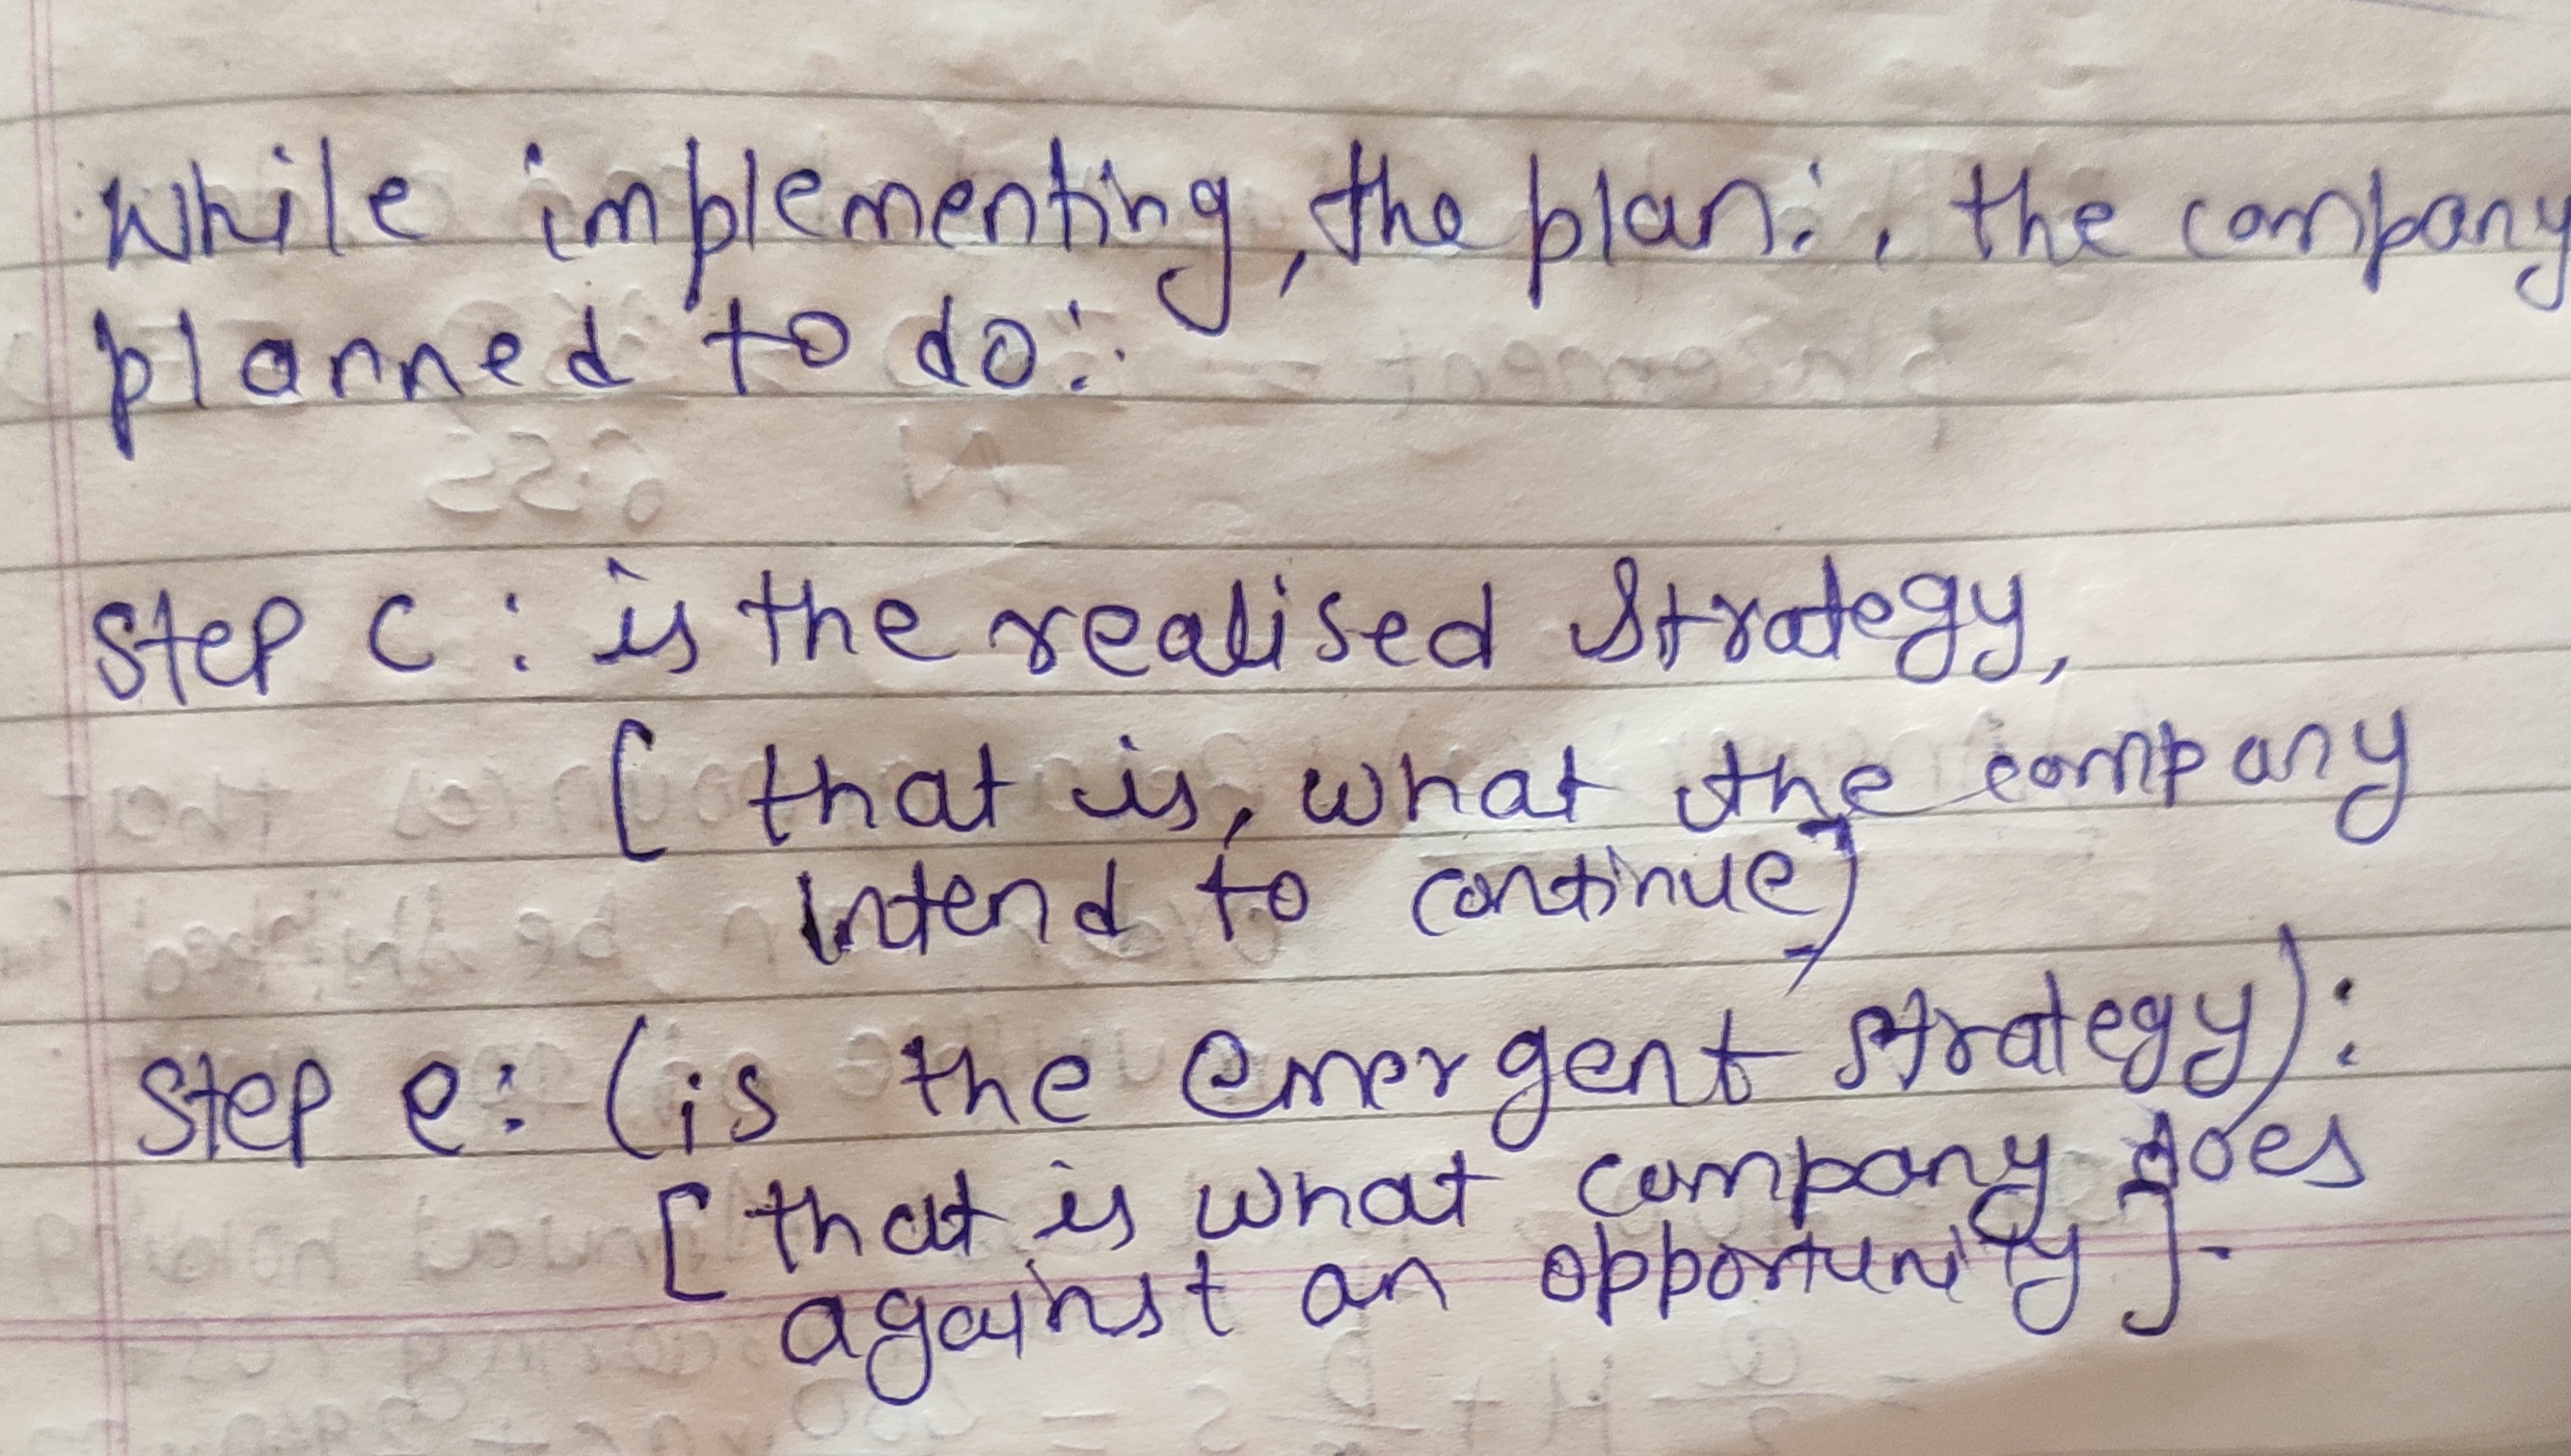 While implementing, the plan:, the company
planned to do:
Step c: is the realised Strategy,
[that is, what the company
Intend to continue]
Step e: (is the emergent strategy):
[that is what company does
against an opportunity].